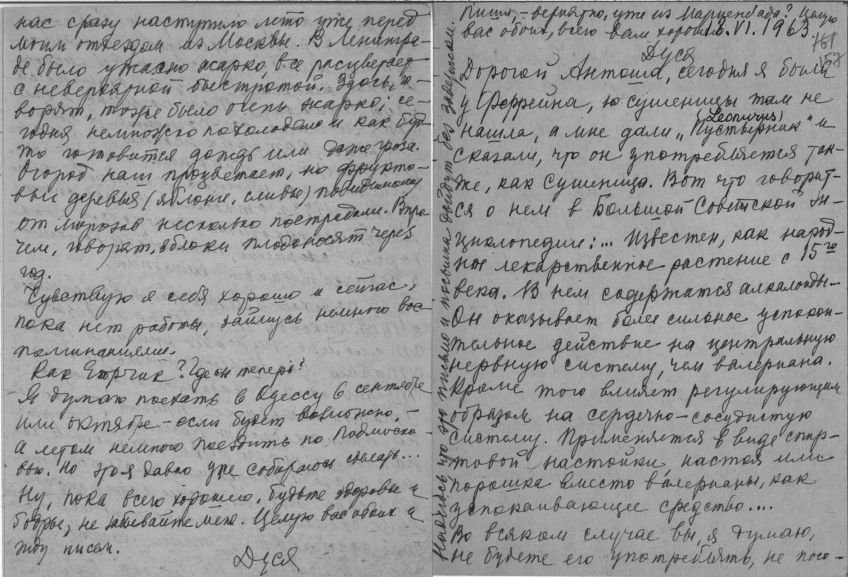 нас сразу наступило лето уже перед
моим отъездом из Москвы. В Ленингра-
де было ужасно жарко, все расцветает
с невероятной быстротой. Здесь, го-
ворят, тоже было очень жарко, се-
годня немножко похолодало и как буд-
то готовится дождь или даже гроза.
Огород наш процветает, но фрукто-
вые деревья (яблони, сливы) повидимому
от морозов несколько пострадали. Впро-
чем, говорят, яблоки плодоносят через
год.
Чувствую я себя хорошо и сейчас,
пока нет работы, займусь немного вос-
поминаниями.
Как Юрчик? Где он теперь?
Я думаю поехать в Одессу в сентябре
или октябре – если будет возможно, –
а летом немного поездить по Подмоско-
вью. Но это я давно уже собираюсь сделать...
Ну, пока всего хорошего, будьте здоровы и
бодры, не забывайте меня. Целую вас обоих и
жду писем.
Дуся
Пиши, – вероятно, уже из Марциенбада? Целую
вас обоих, всего вам хорошего.
Дуся
VI. 1963
Дорогой Антоша, сегодня я была
у Феррейна, но сушеницы там не
нашла, а мне дали „Пустырник" (Leonurus) и
сказали, что он употребляется так-
же, как сушеница. Вот что говорит-
ся о нем в Большой Советской Эн-
циклопедии: ... Известен, как народ-
ное лекарственное растение с 15го
века. В нем содержатся алкалоиды.
Он оказывает более сильное успокои-
тельное действие на центральную
нервную систему, чем валериана.
Кроме того влияет регулирующим
образом на сердечно-сосудистую
систему. Применяется в виде спир-
товой настойки, настоя или
порошка вместо валерианы, как
успокаивающее средство....
Во всяком случае вы, я думаю,
не будете его употреблять, не пого-
Надеюсь, что это письмо и посылка дойдут без задержки.